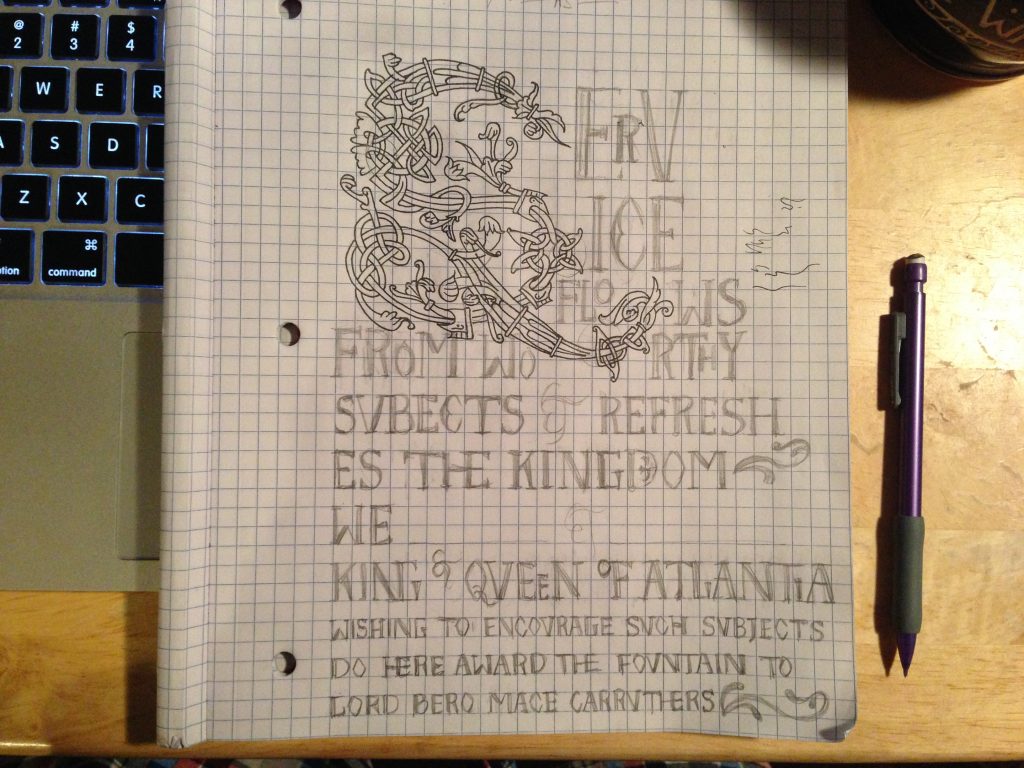 @ # $
2 3 4
W E R
A S D
Z X C
⌘
ption command
SERV
ICE
FLOWS
FROM WORTHY
SVBECTS & REFRESH
ES THE KINGDOM
WE &
KING & QVEEN OF ATLANTIA
WISHING TO ENCOVRAGE SVCH SVBJECTS
DO HERE AWARD THE FOVNTAIN TO
LORD BERO MACE CARRVTHERS